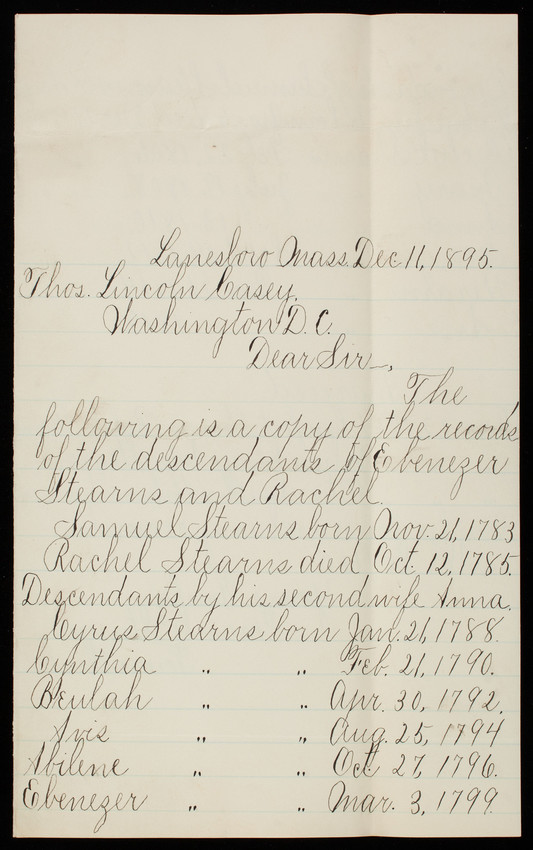 Lanesboro Mass. Dec. 11, 1895.
Thos. Lincoln Casey,
Washington D. C.
Dear Sir—,
The
following is a copy of the records
of the descendants of Ebenezer
Stearns and Rachel.
Samuel Stearns born Nov. 21, 1783
Rachel Stearns died Oct. 12, 1785.
Descendants by his second wife Anna.
Cyrus Stearns born Jan. 21, 1788.
Cynthia " " Feb. 21, 1790.
Beulah " " Apr. 30, 1792.
Avis " " Aug. 25, 1794
Abilene " " Oct. 27, 1796.
Ebenezer " " Mar. 3, 1799.